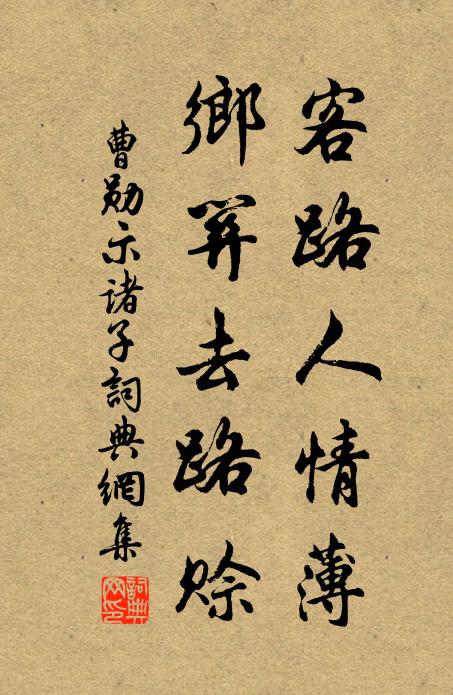 客路人情薄
鄉關去路賒
曹勛示諸子詞典網集
詞典网印